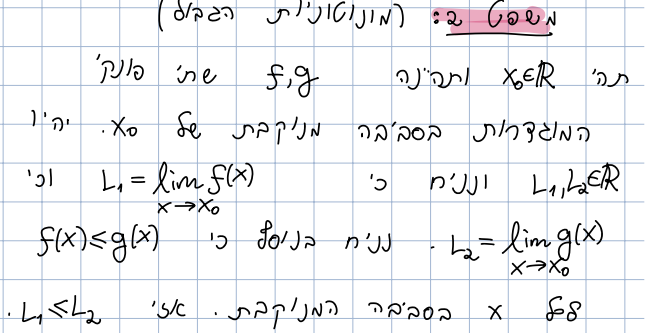 משפט 2: (מונוטוניות הגבול)
תהי x₀∈ℝ ותהיינה f,g שתי פונק'
המוגדרות בסביבה מנוקבת של x₀. יהיו
L₁,L₂∈ℝ ונניח כי L₁ = lim_{x→x₀} f(x) וכי
L₂ = lim_{x→x₀} g(x). נניח בנוסף כי f(x)≤g(x)
לכל x בסביבה המנוקבת. אזי L₁≤L₂.